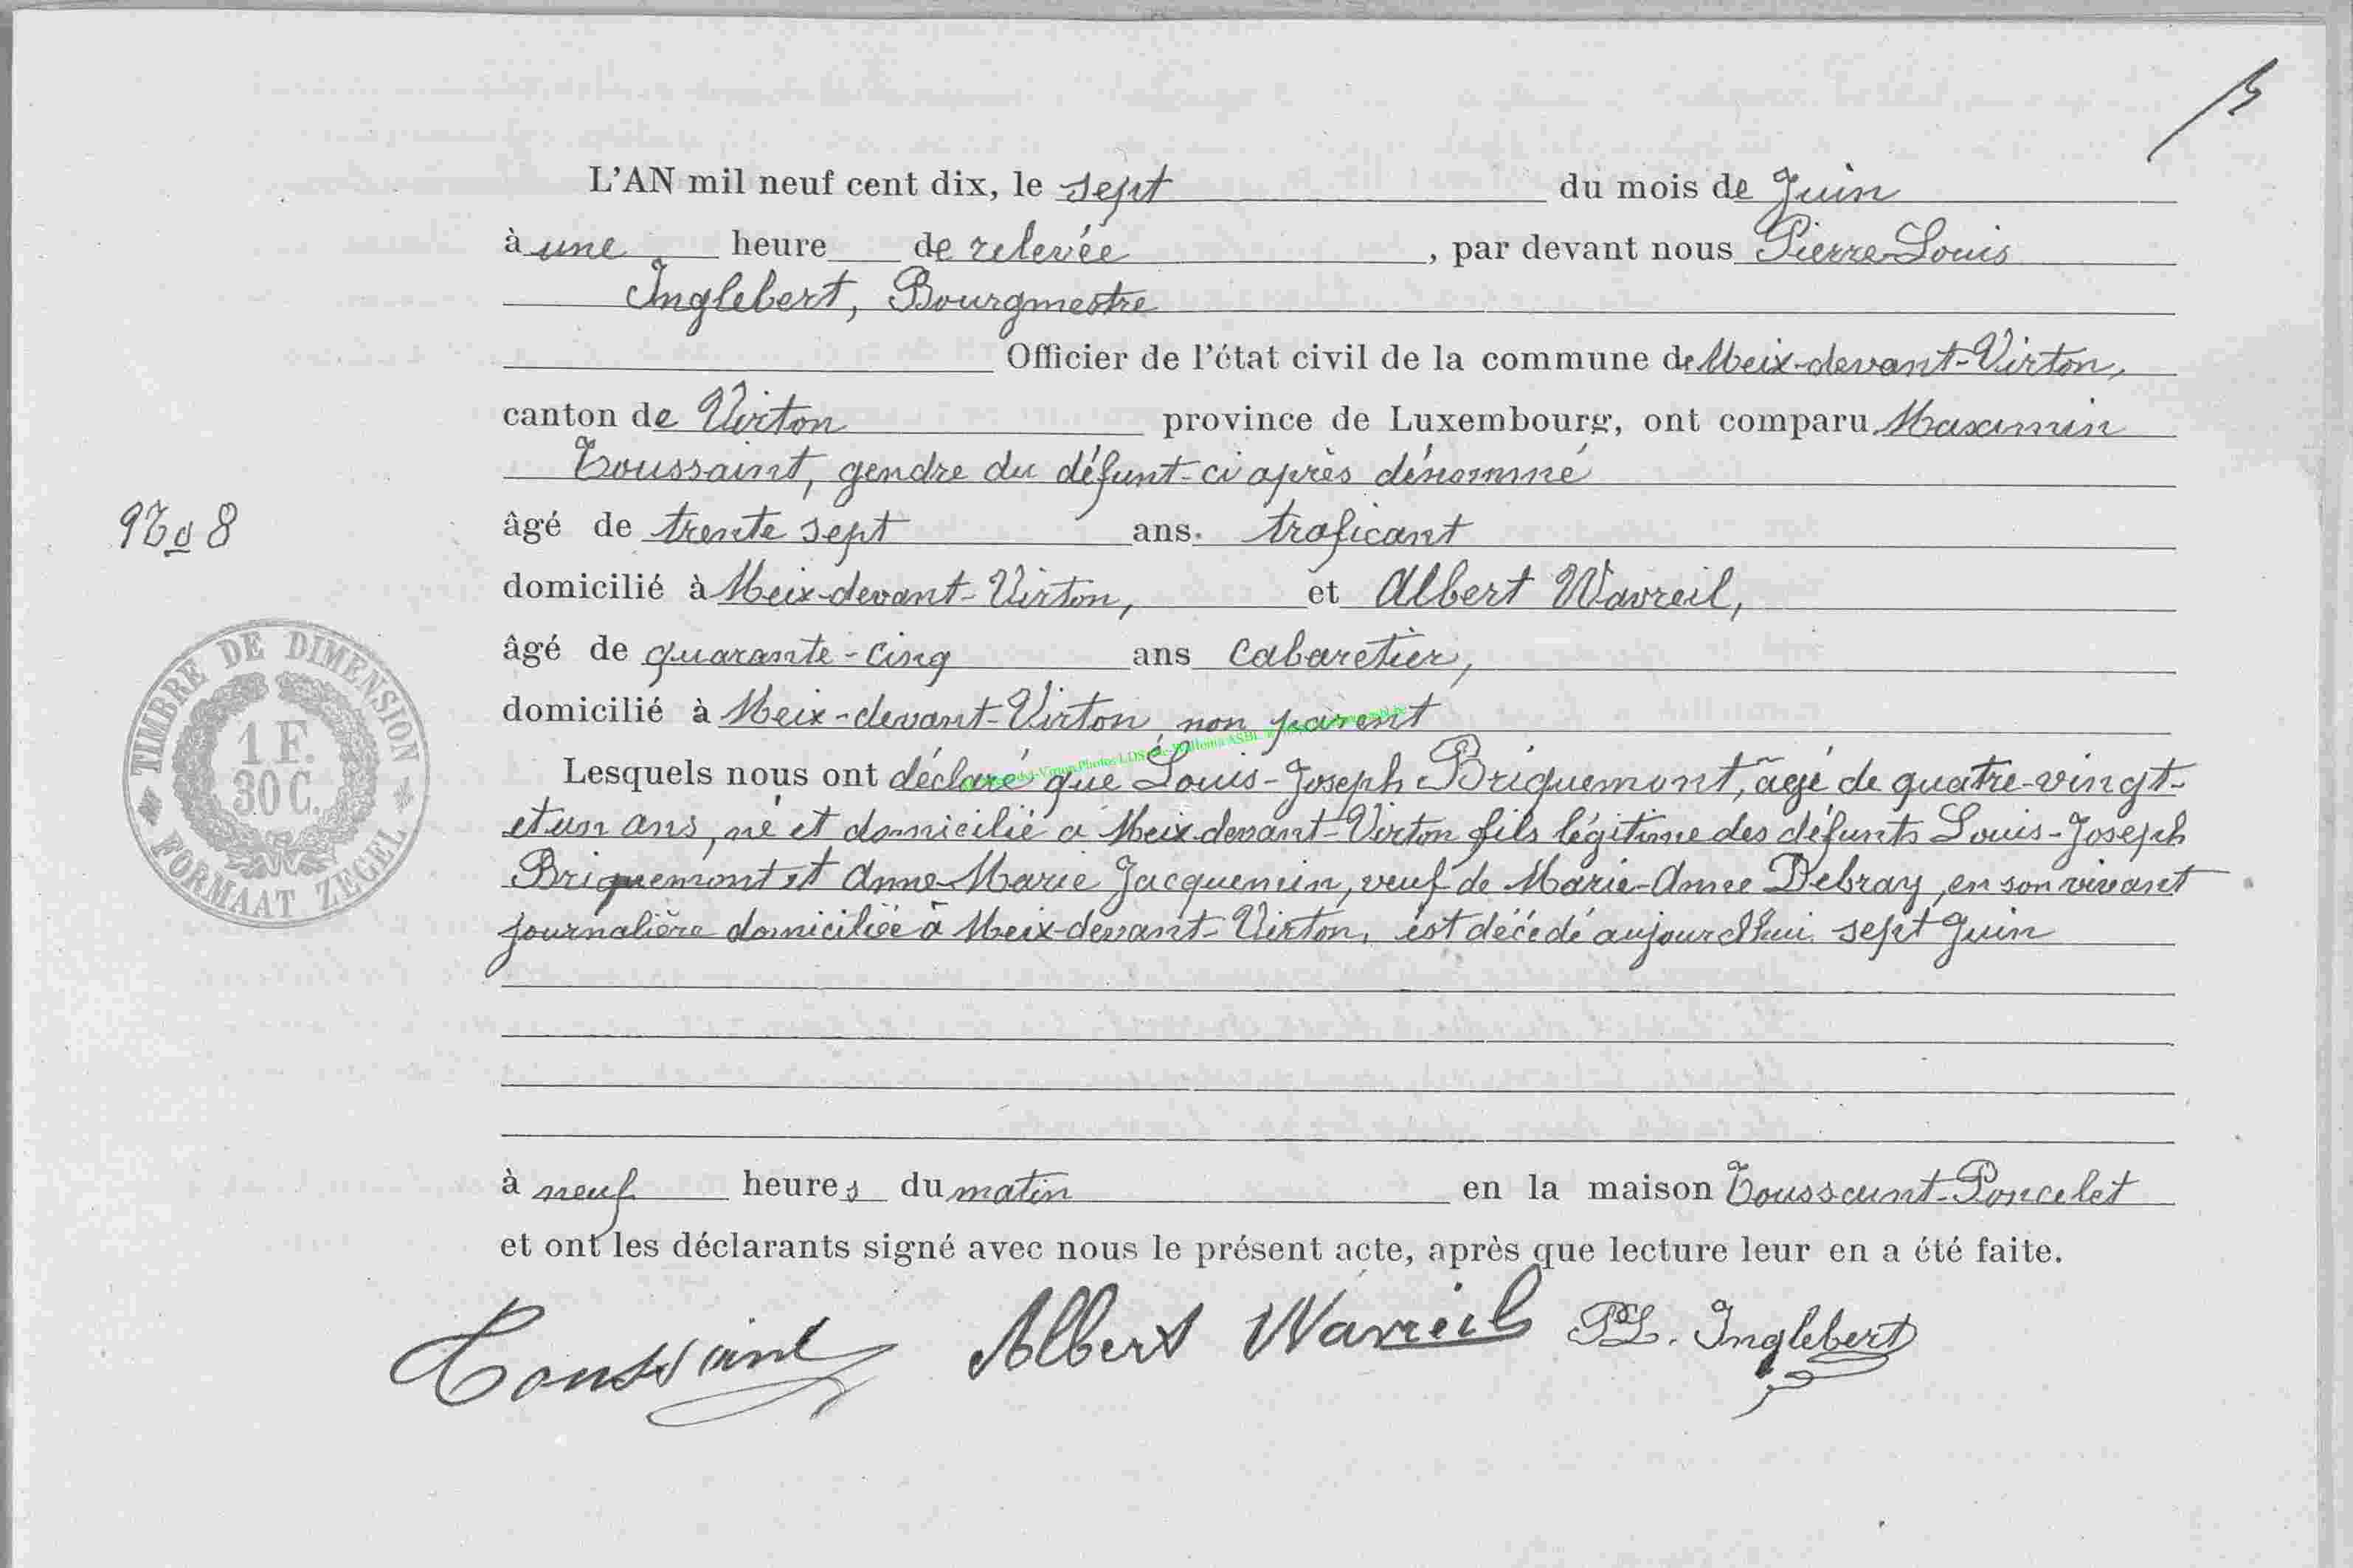 L'AN mil neuf cent dix, le sept du mois de Juin
à une heure de relevée, par devant nous Pierre-Louis
Inglebert, Bourgmestre
Officier de l'état civil de la commune de Meix-devant-Virton,
canton de Virton province de Luxembourg, ont comparu Maximin
Toussaint, gendre du défunt-ci après dénommé
âgé de trente sept ans. traficant
No 8
domicilié à Meix-devant-Virton, et Albert Wavreil,
âgé de quarante-cinq ans cabaretier,
domicilié à Meix-devant-Virton, non parent
TIMBRE DE DIMENSION
1 F.
30 C.
FORMAAT ZEGEL
Lesquels nous ont déclaré que Louis-Joseph Briquemont, âgé de quatre-vingt-
et un ans, né et domicilié à Meix-devant-Virton fils légitime des défunts Louis-Joseph
Briquemont et Anne-Marie Jacquemin, veuf de Marie-Anne Debray, en son vivant
journalière domiciliée à Meix-devant-Virton, est décédé aujourd'hui sept Juin
à neuf heures du matin en la maison Toussaint-Poncelet
et ont les déclarants signé avec nous le présent acte, après que lecture leur en a été faite.
Toussaint Albert Wavreil PL. Inglebert